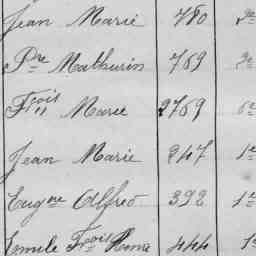 Jean Marie 780 2e
Pre Mathurin 769 2e
Frois Marie 2769 6e
Jean Marie 247 1e
Eugne Alfred 392 1e
Emile Frois 444 1e